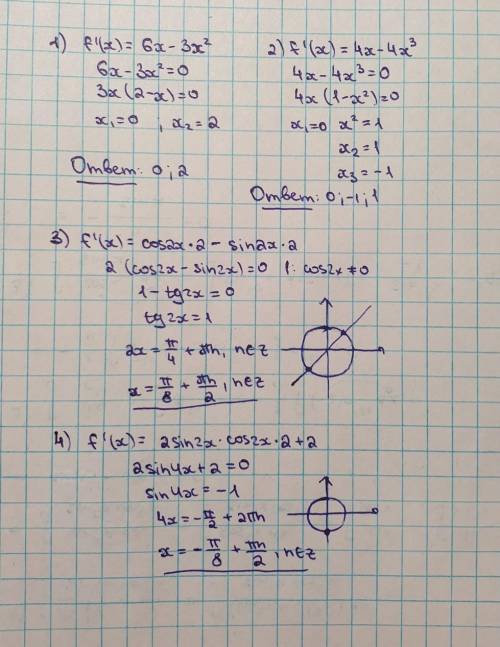 1) f'(x) = 6x - 3x²
6x - 3x² = 0
3x (2 - x) = 0
x₁ = 0 ; x₂ = 2
Ответ: 0; 2
2) f'(x) = 4x - 4x³
4x - 4x³ = 0
4x (1 - x²) = 0
x₁ = 0 x² = 1
x₂ = 1
x₃ = -1
Ответ: 0; -1; 1
3) f'(x) = cos2x · 2 - sin2x · 2
2 (cos2x - sin2x) = 0 |: cos2x ≠ 0
1 - tg2x = 0
tg2x = 1
2x = π/4 + πn, n∈Z
x = π/8 + πn/2, n∈Z
4) f'(x) = 2sin2x · cos2x · 2 + 2
2sin4x + 2 = 0
sin4x = -1
4x = -π/2 + 2πn
x = -π/8 + πn/2, n∈Z